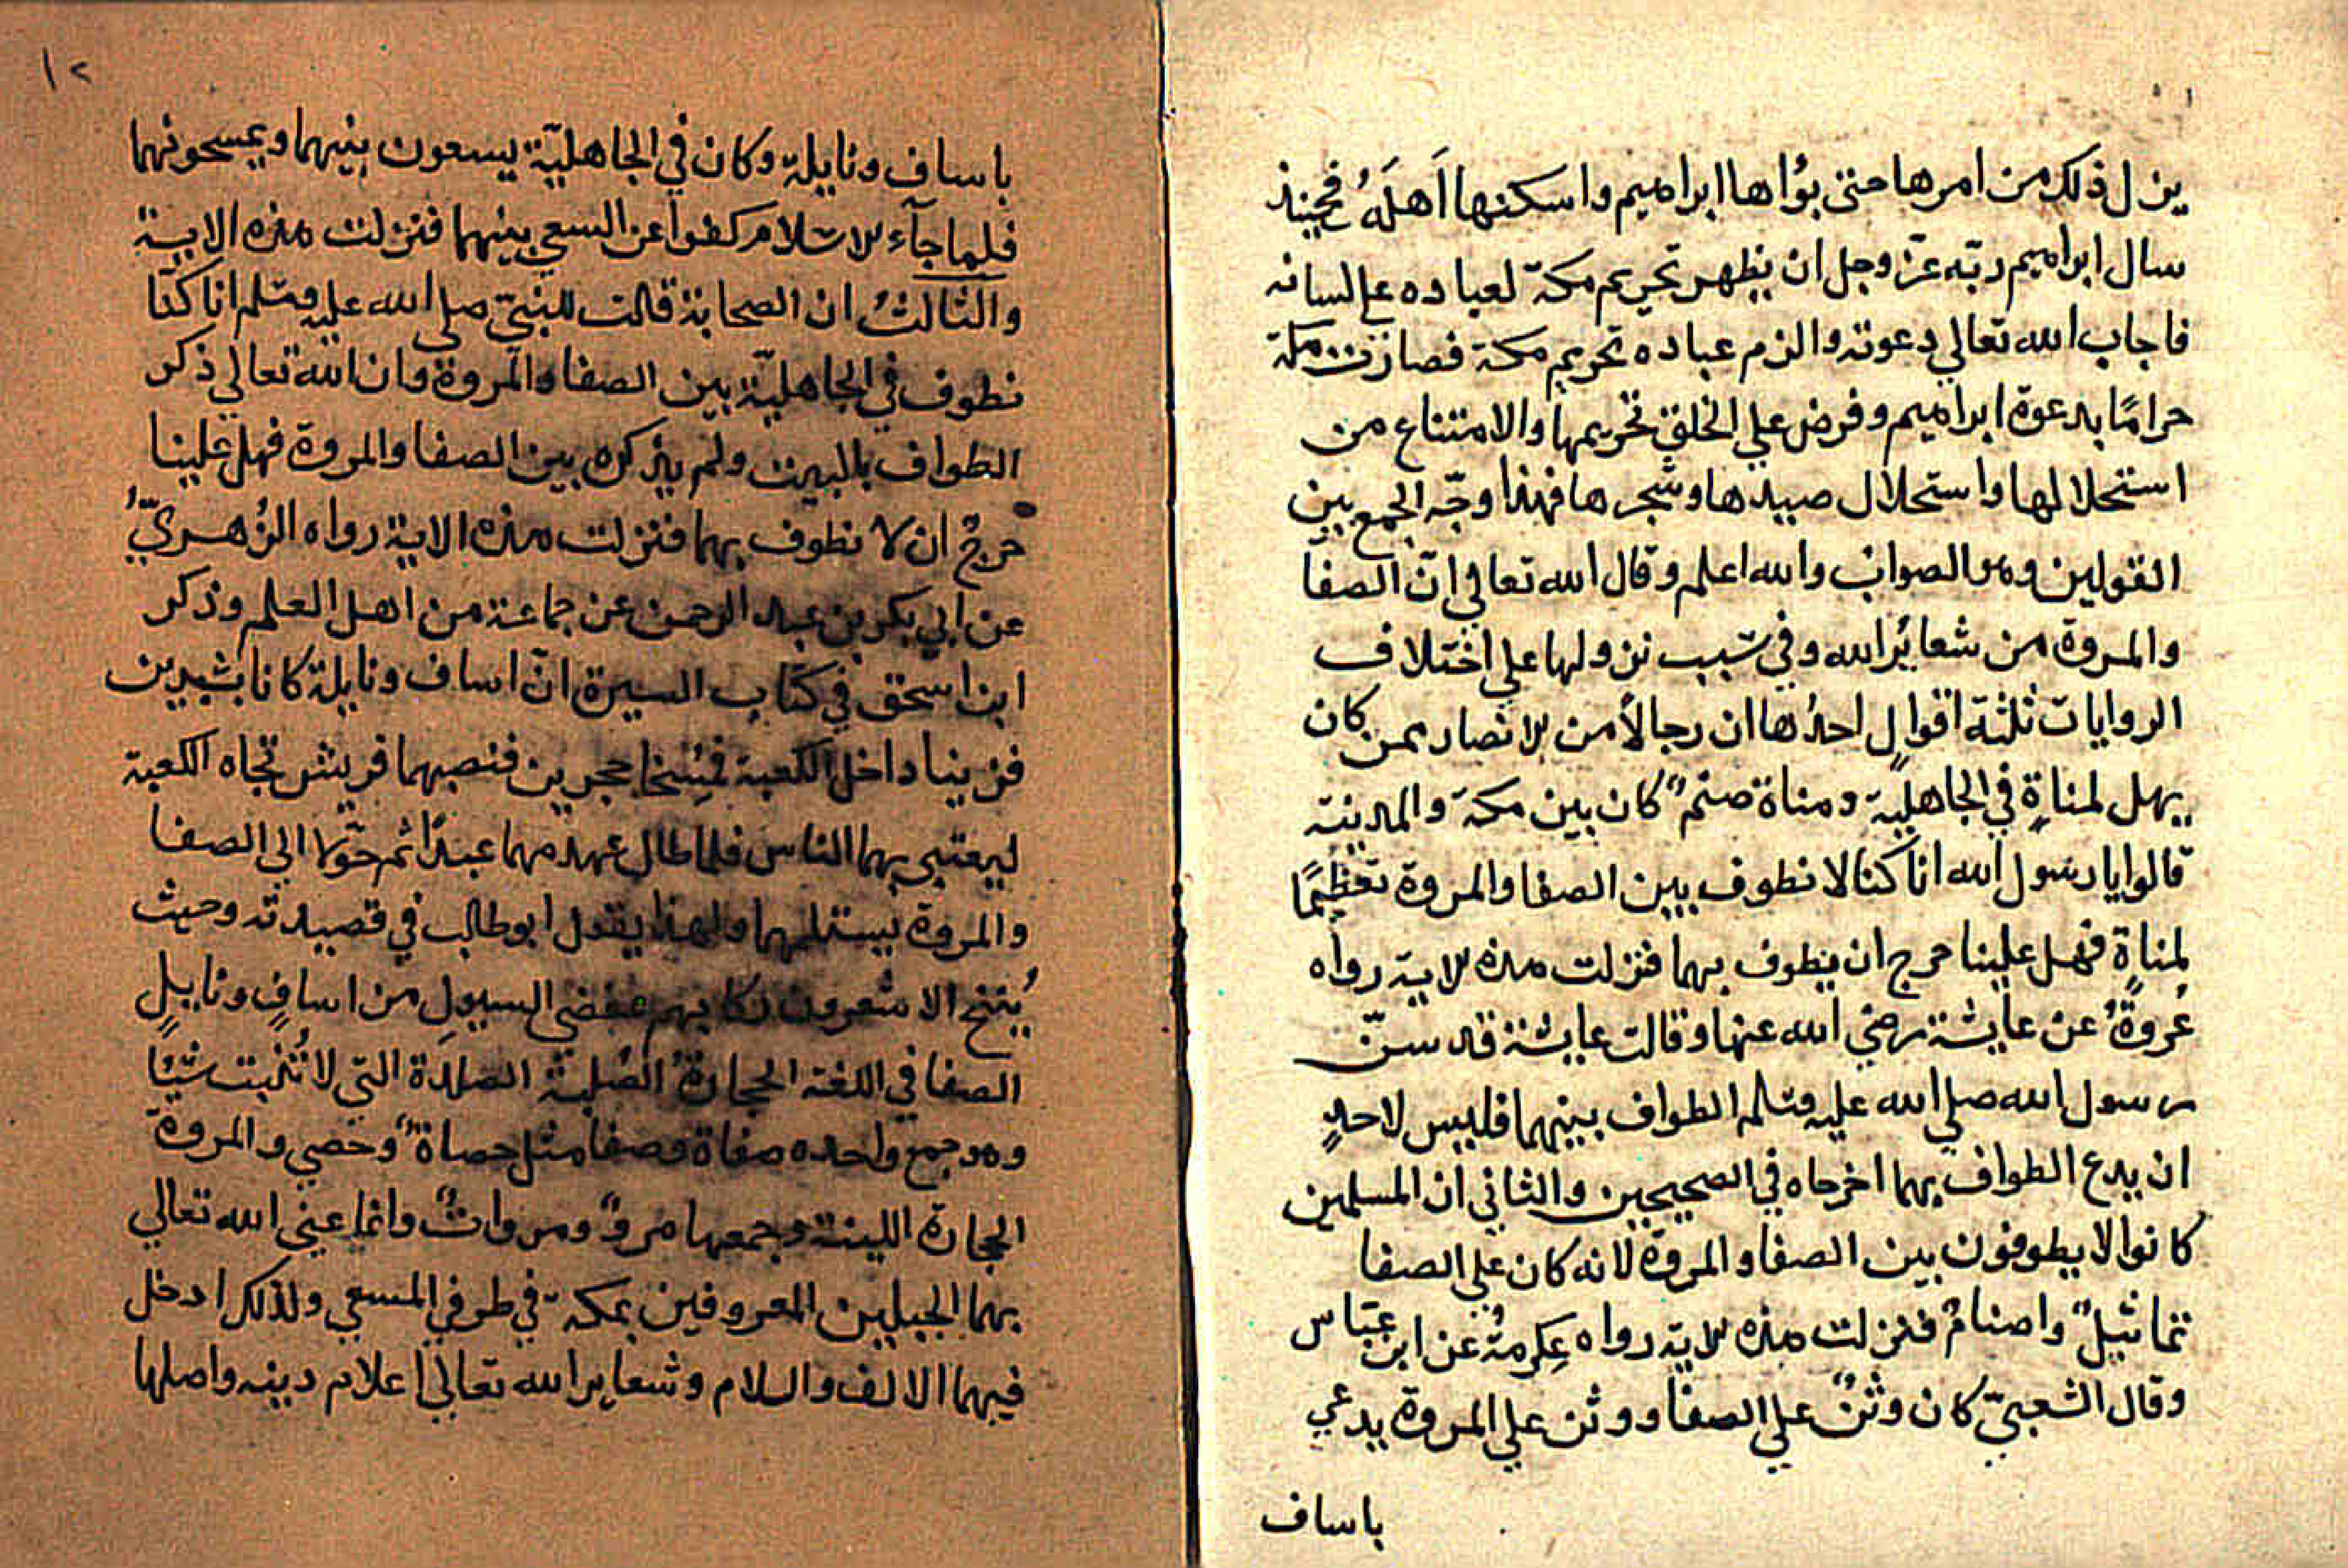 ينزل ذلك من امرها حتى بوأها ابراهيم واسكنها اَهلَهُ فحينئذ
سال ابراهيم ربّه عزّ وجل ان يظهر تحريم مكة لعباده على لسانه
فاجاب الله تعالي دعوته والزم عباده تحريم مكة فصارت مكة
حرامًا بدعوة ابراهيم وفرض علي الخلق تحريمها والامتناع من
استحلالها واستحلال صيدها وشجرها فهذا وجّه الجمع بين
القولين وهو الصواب والله اعلم وقال الله تعالي انّ الصفا
والمروة من شعائر الله وفي سبب نزولها علي اختلاف
الروايات ثلثة اقوالٍ احدُها ان رجالاً من الانصار ممن كان
يهل لمناةٍ في الجاهلية ومناة صنمٌ كان بين مكة والمدينة
قالوا يا رسول الله انا كنا لا نطوف بين الصفا والمروة تعظيمًا
لمناةٍ فهل علينا حرج ان نطوف بهما فنزلت هذه الاية رواه
عُروةُ عن عايشة رضي الله عنها وقالت عايشة قد سنّ
رسول الله صلي الله عليه وسلم الطواف بينهما فليس لاحدٍ
ان يدع الطواف بهما اخرجاه في الصحيحين والثاني ان المسلمين
كانوا لا يطوفون بين الصفا والمروة لانه كان علي الصفا
تماثيلٌ واصنامٌ فنزلت هذه الاية رواه عِكرمةُ عن ابن عبّاس
وقال الشعبيّ كان وثنٌ علي الصفا ووثن علي المروة يدعي
باساف
١٢
باساف ونايلة وكان في الجاهليّة يسعون بينهما ويمسحونهما
فلما جآء الاسلام كفوا عن السعي بينهما فنزلت هذه الاية
والثالثُ ان الصحابة قالت للنبيّ صلي الله عليه وسلم انا كنّا
نطوف في الجاهليّة بين الصفا والمروة وان الله تعالي ذكر
الطواف بالبيت ولم يذكره بين الصفا والمروة فهل علينا
حرجٌ ان لا نطوف بهما فنزلت هذه الاية رواه الزُهريُّ
عن ابي بكر بن عبد الرحمن عن جماعة من اهل العلم وذكر
ابن اسحق في كتاب السيرة انّ اساف ونايلة كانا بشرين
فزنيا داخل الكعبة فمُسِخا حجرين فنصبهما قريش تجاه الكعبة
ليعتبر بهما الناس فلما طال عهدهما عبدا ثم حوّلا الي الصفا
والمروة يستلمهما ولهذا يقول ابو طالب في قصيدته وحيث
يُنيخ الاشعرون ركابهم بمفضى السيولِ من اسافٍ ونايلٍ
الصفا في اللغة الحجارةُ الصُلبة الصلدة التي لا تُنبت شيًا
وهو جمع واحده صفاة وصفا مثل حصاةٌ وحصي والمروة
الحجارة اللينة وجمعها مروٌ ومرواتٌ وانما عني الله تعالي
بهما الجبلين المعروفين بمكة في طرفي المسعي ولذلك ادخل
فيهما الالف واللام وشعاير الله تعالي اعلام دينه واصلها